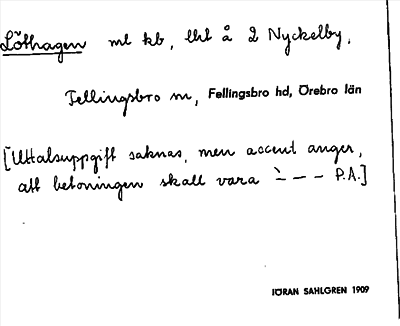 Löthagen ml kb, lht å 2 Nyckelby,
Fellingsbro sn, Fellingsbro hd, Örebro län
[Uttalsuppgift saknas, men accent anger,
att betoningen skall vara ˋ– – – P.A.]
IÖRAN SAHLGREN 1909